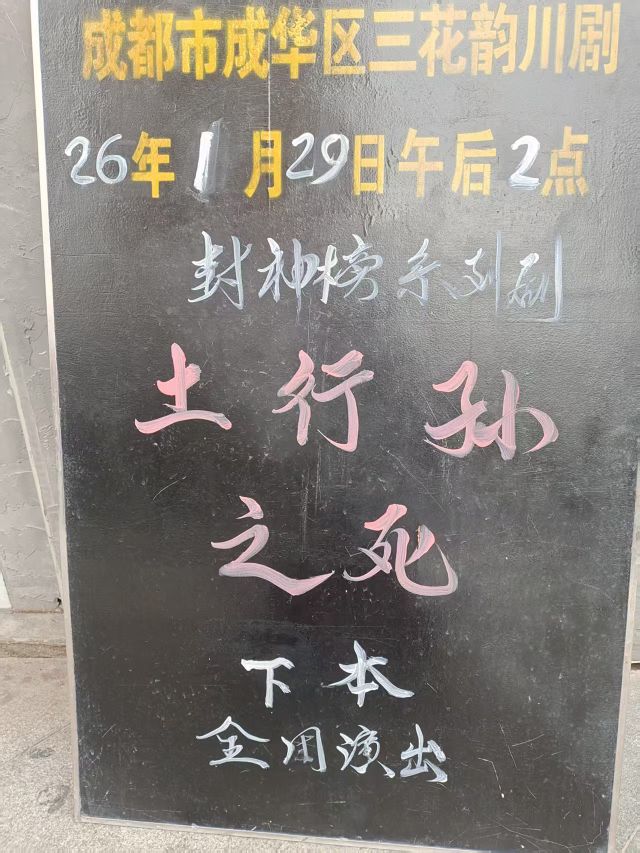 成都市成华区三花韵川剧
26年1月29日午后2点
封神榜系列剧
土行孙
之死
下本
全团演出